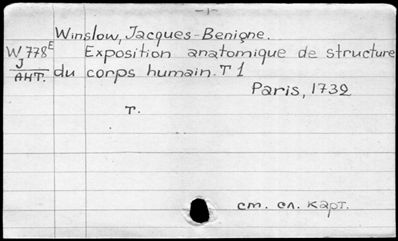 -1-
Winslow, Jacques-Benigne.
W 778E Exposition anatomique de structure
J
АНТ. du corps humain. T 1
Paris, 1732
T.
ст. сл. карт.